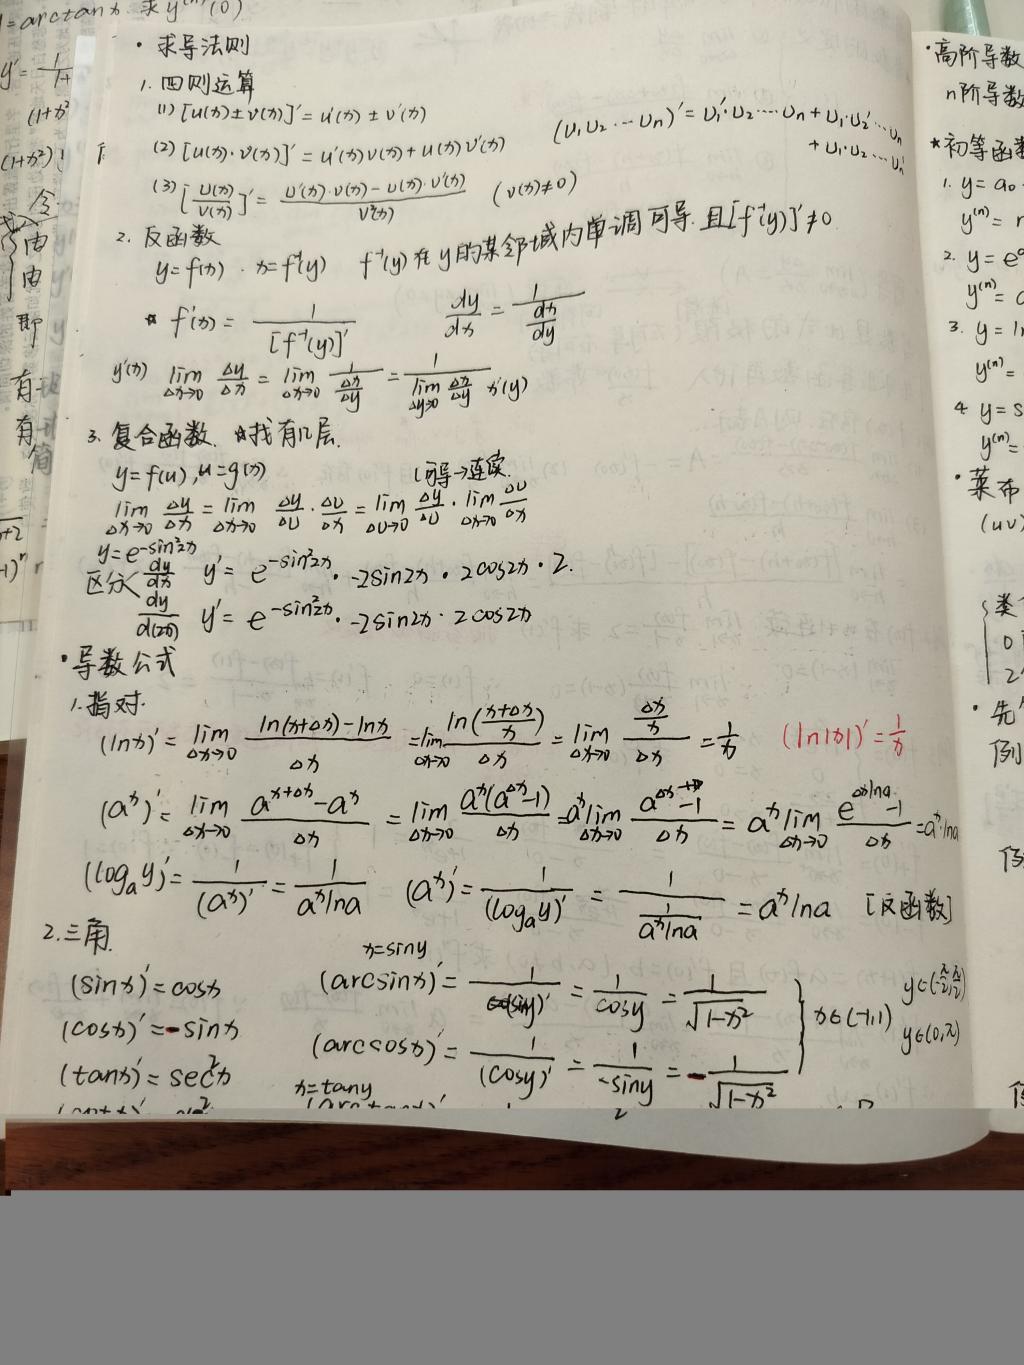 =arctanx. 求y⁽ⁿ⁾(0)
· 求导法则
1. 四则运算
(1) [u(x)±v(x)]′=u′(x)±v′(x)
(u₁u₂…uₙ)′=u₁′·u₂…uₙ+u₁·u₂′…uₙ
+u₁·u₂…uₙ′
(2) [u(x)·v(x)]′=u′(x)v(x)+u(x)v′(x)
(3) [u(x)/v(x)]′= (u′(x)·v(x)-u(x)·v′(x))/v²(x) (v(x)≠0)
2. 反函数
y=f(x). x=f⁻¹(y) f⁻¹(y)在y的某邻域内单调可导.且[f⁻¹(y)]′≠0.
* f′(x)= 1/[f⁻¹(y)]′ dy/dx=1/(dx/dy)
y′(x) lim(Δx→0) Δy/Δx=lim(Δx→0) 1/(Δx/Δy)=1/(lim(Δy→0) Δx/Δy) x′(y)
3. 复合函数. *找有几层.
y=f(u), u=g(x) (可导→连续.
lim(Δx→0) Δy/Δx=lim(Δx→0) Δy/Δu·Δu/Δx=lim(Δu→0) Δy/Δu·lim(Δx→0) Δu/Δx
y=e^(-sin²2x)
区分 dy/dx y′=e^(-sin²2x)·-2sin2x·2cos2x·2.
dy/d(2x) y′=e^(-sin²2x)·-2sin2x·2cos2x
· 导数公式
1. 指对.
(lnx)′=lim(Δx→0) (ln(x+Δx)-lnx)/Δx=lim(Δx→0) ln((x+Δx)/x)/Δx=lim(Δx→0) (Δx/x)/Δx=1/x (ln|x|)′=1/x
(aˣ)′=lim(Δx→0) (a^(x+Δx)-aˣ)/Δx=lim(Δx→0) aˣ(a^Δx-1)/Δx=aˣlim(Δx→0) (a^Δx-1)/Δx=aˣlim(Δx→0) (e^(Δxlna)-1)/Δx=aˣ·lna
(logₐy)′=1/(aˣ)′=1/(aˣlna) (aˣ)′=1/(logₐy)′=1/(1/(aˣlna))=aˣlna [反函数]
2. 三角.
x=siny
(sinx)′=cosx (arcsinx)′=1/(siny)′=1/cosy=1/√(1-x²) y∈(-π/2,π/2)
x∈(-1,1)
(cosx)′=-sinx (arccosx)′=1/(cosy)′=1/(-siny)=-1/√(1-x²) y∈(0,π)
(tanx)′=sec²x
x=tany
· 高阶导数
n阶导数
*初等函数
1. y=a₀
y⁽ⁿ⁾=
2. y=e
y⁽ⁿ⁾=
3. y=ln
y⁽ⁿ⁾=
4. y=s
y⁽ⁿ⁾=
· 莱布
(uv)
例
令
由
由
即
有
有